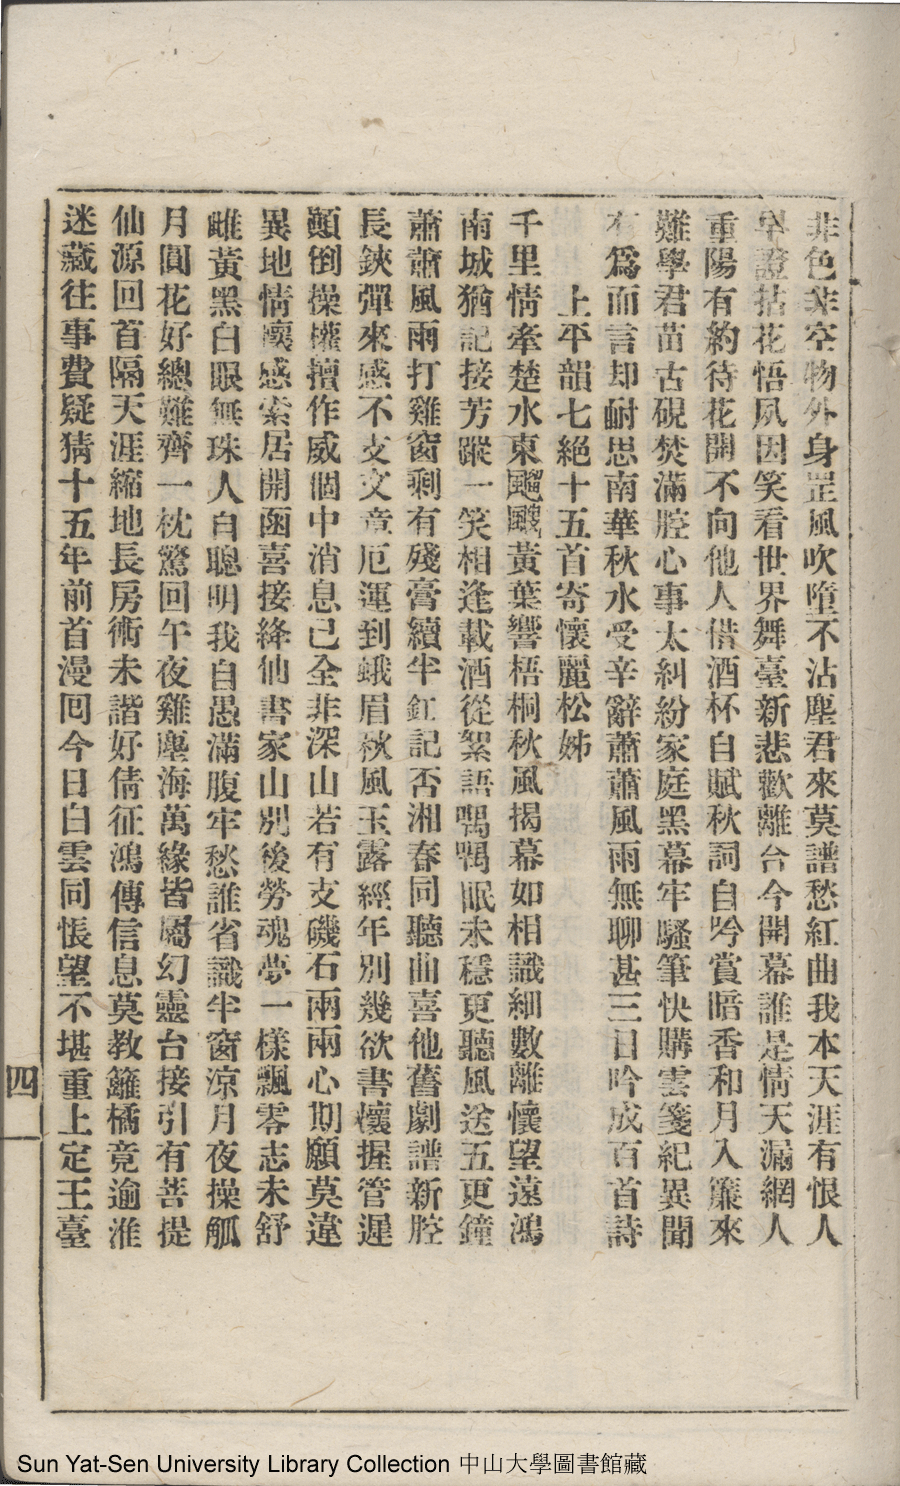 非色非空物外身罡風吹墮不沾塵君來莫譜愁紅曲我本天涯有恨人
早證拈花悟夙因笑看世界舞臺新悲歡離合今開幕誰是情天漏網人
重陽有約待花開不向他人借酒杯自賦秋詞自吟賞暗香和月入簾來
難學君苗古硯焚滿腔心事太糾紛家庭黑幕牢騷筆快購雲箋紀異聞
有爲而言却耐思南華秋水受辛辭蕭蕭風雨無聊甚三日吟成百首詩
上平韻七絕十五首寄懷麗松姊
千里情牽楚水東颸颸黃葉響梧桐秋風揭幕如相識細數離懷望遠鴻
南城猶記接芳蹤一笑相逢載酒從絮語喁喁眠未穩更聽風送五更鐘
蕭蕭風雨打雞窗剩有殘膏續半釭記否湘春同聽曲喜他舊劇譜新腔
長鋏彈來感不支文章厄運到蛾眉秋風玉露經年別幾欲書懷握管遲
顚倒操權擅作威個中消息已全非深山若有支磯石兩兩心期願莫違
異地情懷感索居開函喜接絳仙書家山別後勞魂夢一樣飄零志未舒
雌黃黑白眼無珠人自聰明我自愚滿腹牢愁誰省識半窗涼月夜操觚
月圓花好總難齊一枕驚回午夜雞塵海萬緣皆屬幻靈台接引有菩提
仙源回首隔天涯縮地長房術未諧好倩征鴻傳信息莫教籬橘竟逾淮
迷藏往事費疑猜十五年前首漫囘今日白雲同悵望不堪重上定王臺
四
Sun Yat-Sen University Library Collection 中山大學圖書館藏